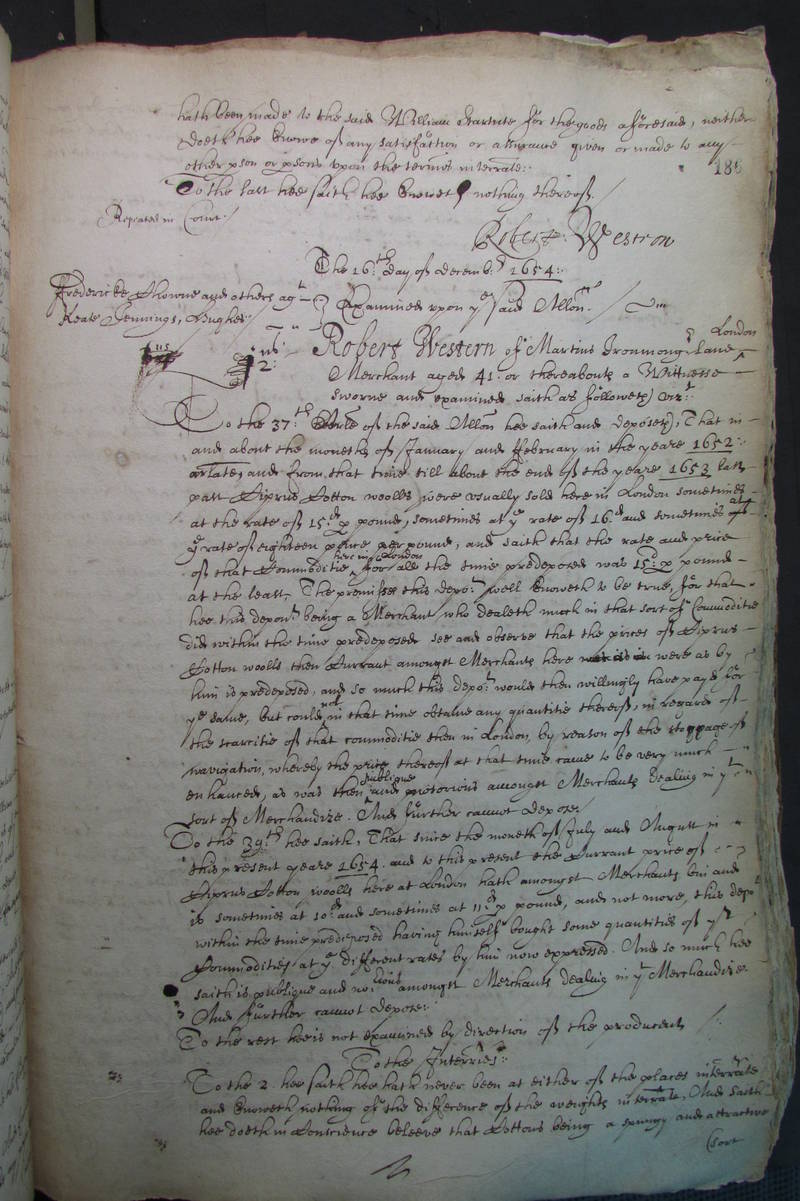 hath been made to the said William for the goods aforesaid, neither
doeth hee knowe of any satisfaction or assurance given or made to any
other pson or psons upon the termes interrate:
To the last hee saith hee knoweth nothing thereof.
Repeated in Court./
Robert: Western
The 16:th day of decemb:r 1654:
Fredericke and others agt
Keate Jennings, Hughes
Examined upon ye said Allon.
2:
Robert Western of Martins Ironmongr Lane London
Merchant aged 41. or thereabouts a Witnesse
sworne and examined saith as followeth vizt
To the 37:th Article of the said Allon hee saith and deposeth, That in
and about the moneths of January and February in the yeare 1652:
and from that time till about the end of the yeare 1653 last
past Ciprus Cotton woolls were usually sold here in London sometimes
at the rate of 15:d p pound, sometimes at ye rate of 16:d and sometimes att
ye rate of eighteen pence per pound, and saith that the rate and price
of that Commoditie here in London for all the time predeposed was 15:d p pound
at the least, The premisses this depot well knoweth to be true, for that
hee this depont being a Merchant who dealeth much in that sort of Commoditie
did within the time predeposed see and observe that the prices of Ciprus
Cotton woolls then Currant amongst Merchants here were as by
him is predeposed, and so much this depot would then willingly have payd for
ye same, but could not in that time obtaine any quantitie thereof, in regard of
the scarcitie of that commoditie then in London, by reason of the stoppage of
navigation, whereby the price thereof at that time came to be very much
enhanced, as was then publique and notorious amongst Merchants dealing in yt
sort of Merchandize. And further cannot depose/
To the 39:th hee saith, That since the moneth of July and August in
this present yeare 1654. and to this present the Currant price of
Ciprus Cotton woolls here at London hath amongst Merchants bin and
is sometimes at 10:d and sometimes at 11:d p pound, and not more, this depot
within the time predeposed having himself bought some quantities of yt
Commoditie at ye different rates by him now expressed. And so much hee
saith is publique and notorious amongst Merchants dealing in yt Merchandize.
And further cannot depose:
To the rest hee is not examined by direction of the producents
To the Interries:
To the 2. hee saith hee hath never been at either of the places interrate
and knoweth nothing of the difference of the weights interrate, And saith
hee doeth in Conscience beleeve that Cottons being a spungy and attractive
(sort